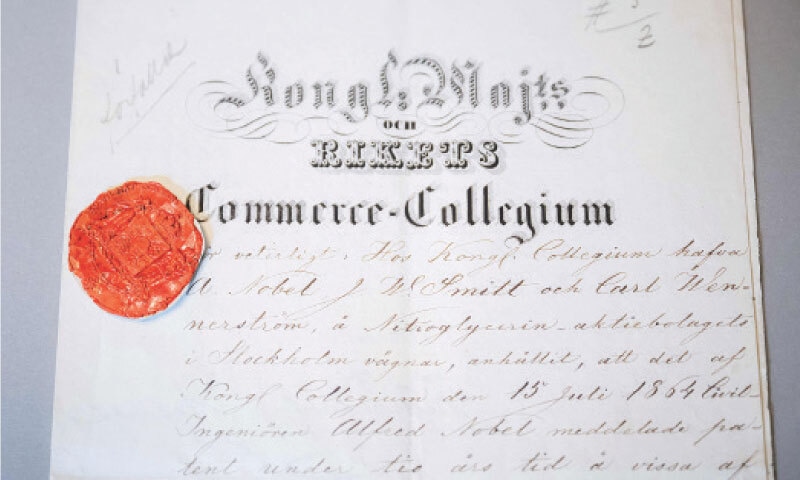 Kongl: Maj:ts
OCH
RIKETS
Commerce-Collegium
veterligt, Hos Kongl. Collegium hafva
A. Nobel J. W. Smitt och Carl Wen-
nerström, å Nitroglycerin-aktiebolagets
i Stockholm vägnar, anhållit, att det af
Kongl Collegium den 15 Juli 1864 Civil-
Ingeniören Alfred Nobel meddelade pa-
tent under tio års tid å vissa af